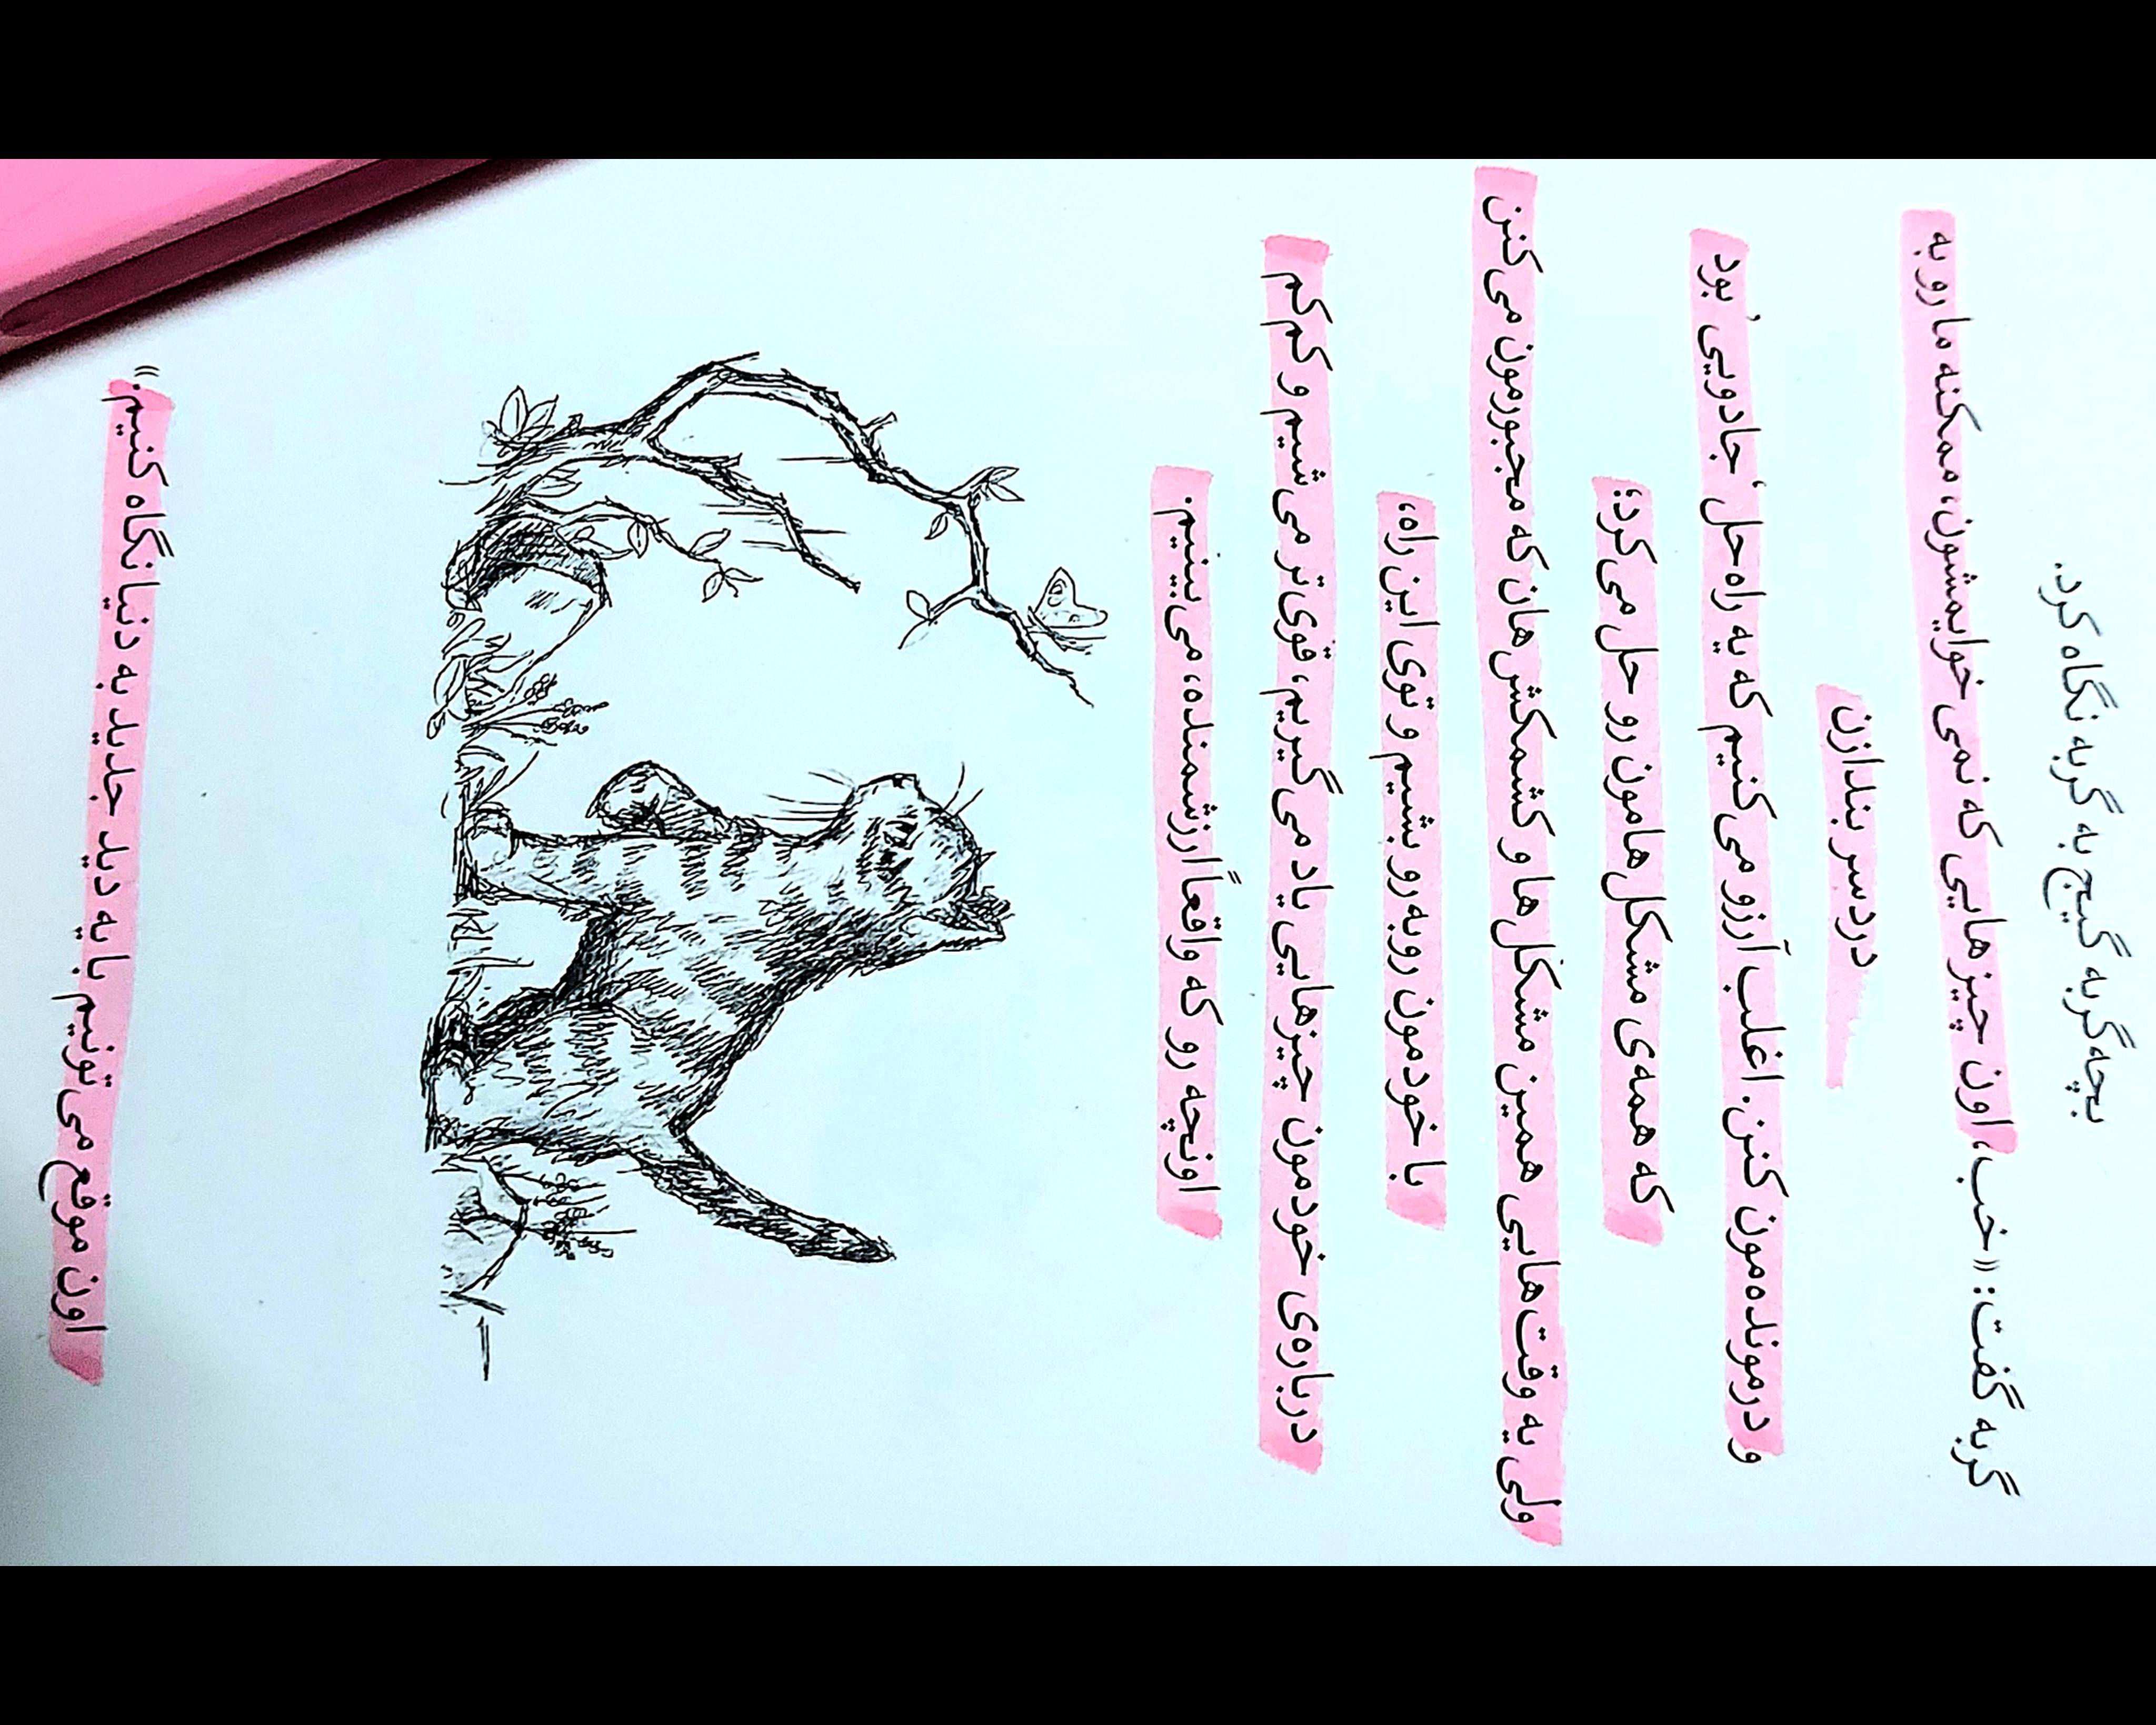 بچه گربه گیج به گربه نگاه کرد.
گربه گفت: «خب، اون چیزهایی که نمی خوایمشون، ممکنه ما رو به
دردسر بندازن
و درمونده مون کنن. اغلب آرزو می کنیم که یه راه حل ‘جادویی’ بود
که همه ی مشکل هامون رو حل می کرد؛
ولی یه وقت هایی همین مشکل ها و کشمکش هان که مجبورمون می کنن
با خودمون روبه رو بشیم و توی این راه،
درباره ی خودمون چیزهایی یاد می گیریم، قوی تر می شیم و کم کم
اونچه رو که واقعاً ارزشمنده، می بینیم.
اون موقع می تونیم با یه دید جدید به دنیا نگاه کنیم.»